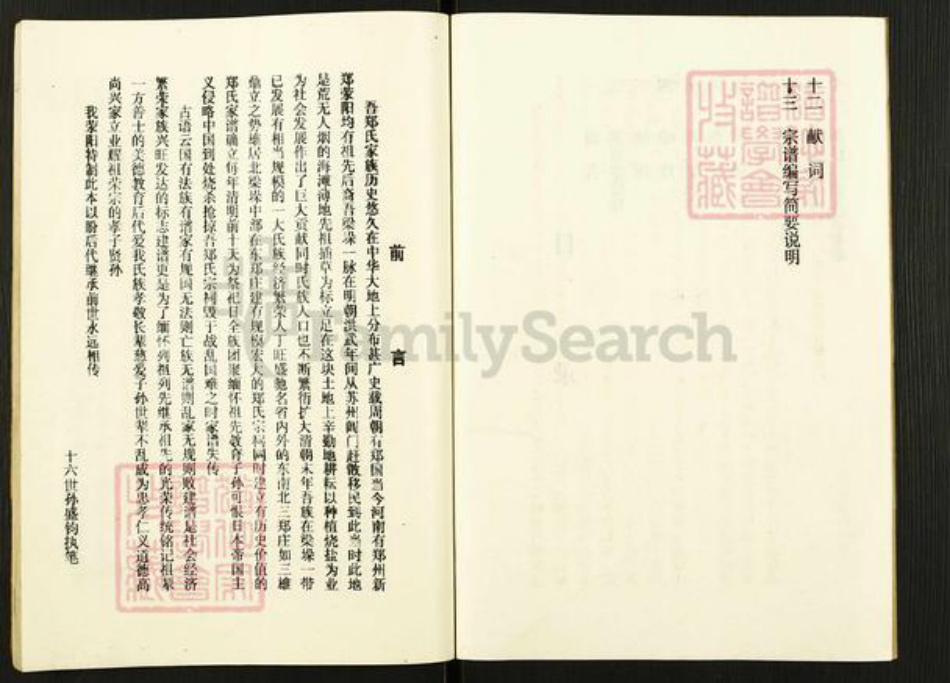 十二 献词
十三 宗谱编写简要说明
前言
吾郑氏家族历史悠久在中华大地上分布甚广史载周朝有郑国当今河南有郑州新
郑荥阳均有祖先后裔吾梁垛一脉在明朝洪武年间从苏州阊门赶散移民到此当时此地
是荒无人烟的海滩薄地先祖插草为标立足在这块土地上辛勤地耕耘以种植烧盐为业
为社会发展作出了巨大贡献同时氏族人口也不断繁衍扩大清朝末年吾族在梁垛一带
已发展有相当规模的一大氏族经济繁荣人丁旺盛驰名省内外的东南北三郑庄如三雄
鼎立之势雄居北梁垛中部在东郑庄建有规模宏大的郑氏宗祠同时建立有历史价值的
郑氏家谱确立每年清明前十天为祭祀日全族团聚缅怀祖先教育子孙可恨日本帝国主
义侵略中国到处烧杀抢掠吾郑氏宗祠毁于战乱国难之时家谱失传
古语云国有法族有谱家有规国无法则亡族无谱则乱家无规则败建谱是社会经济
繁荣家族兴旺发达的标志建谱更是为了缅怀列祖列先继承祖先的光荣传统铭记祖辈
一方善士的美德教育后代爱我氏族孝敬长辈慈爱子孙世辈不乱成为忠孝仁义道德高
尚兴家立业耀祖荣宗的孝子贤孙
我荥阳特制此本以盼后代继承前世永远相传
十六世孙盛钧执笔
FamilySearch